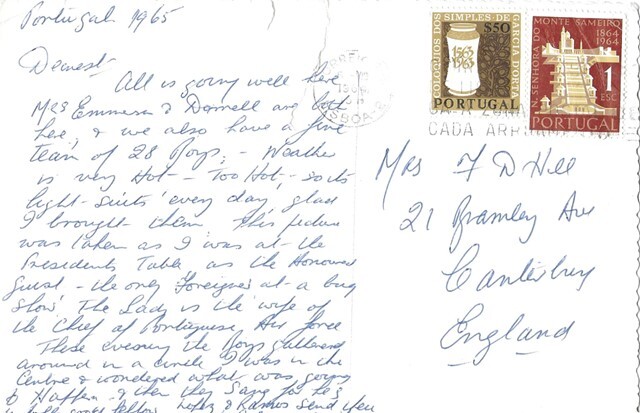 Portugal 1965
Dearest
All is going well here
Mrs Emmerson & Darnell are both
here, & we also have a fine
team of 28 Boys, - Weather
is very Hot - Too Hot - so its
light-suits every day, glad
I brought them. This picture
was taken as I was at the
Presidents Table as the Honoured
Guest - the only Foreigner at a big
Show! The Lady is the wife of
the Chief of Portuguese Air force
These evening the Boys gathered
around in a circle I was in the
Centre & wondered what was going
to Happen & then they Sang for he's
jolly good fellow & send
COLOQUIOS DOS SIMPLES-DE GARCIA D'ORTA
$50
1563
1963
PORTUGAL
N. SENHORA DO MONTE SAMEIRO
1864
1964
1
ESC
PORTUGAL
CORREIO
LISBOA-2
CADA
Mrs F D Hill
21 Bramley Av
Canterbury
England